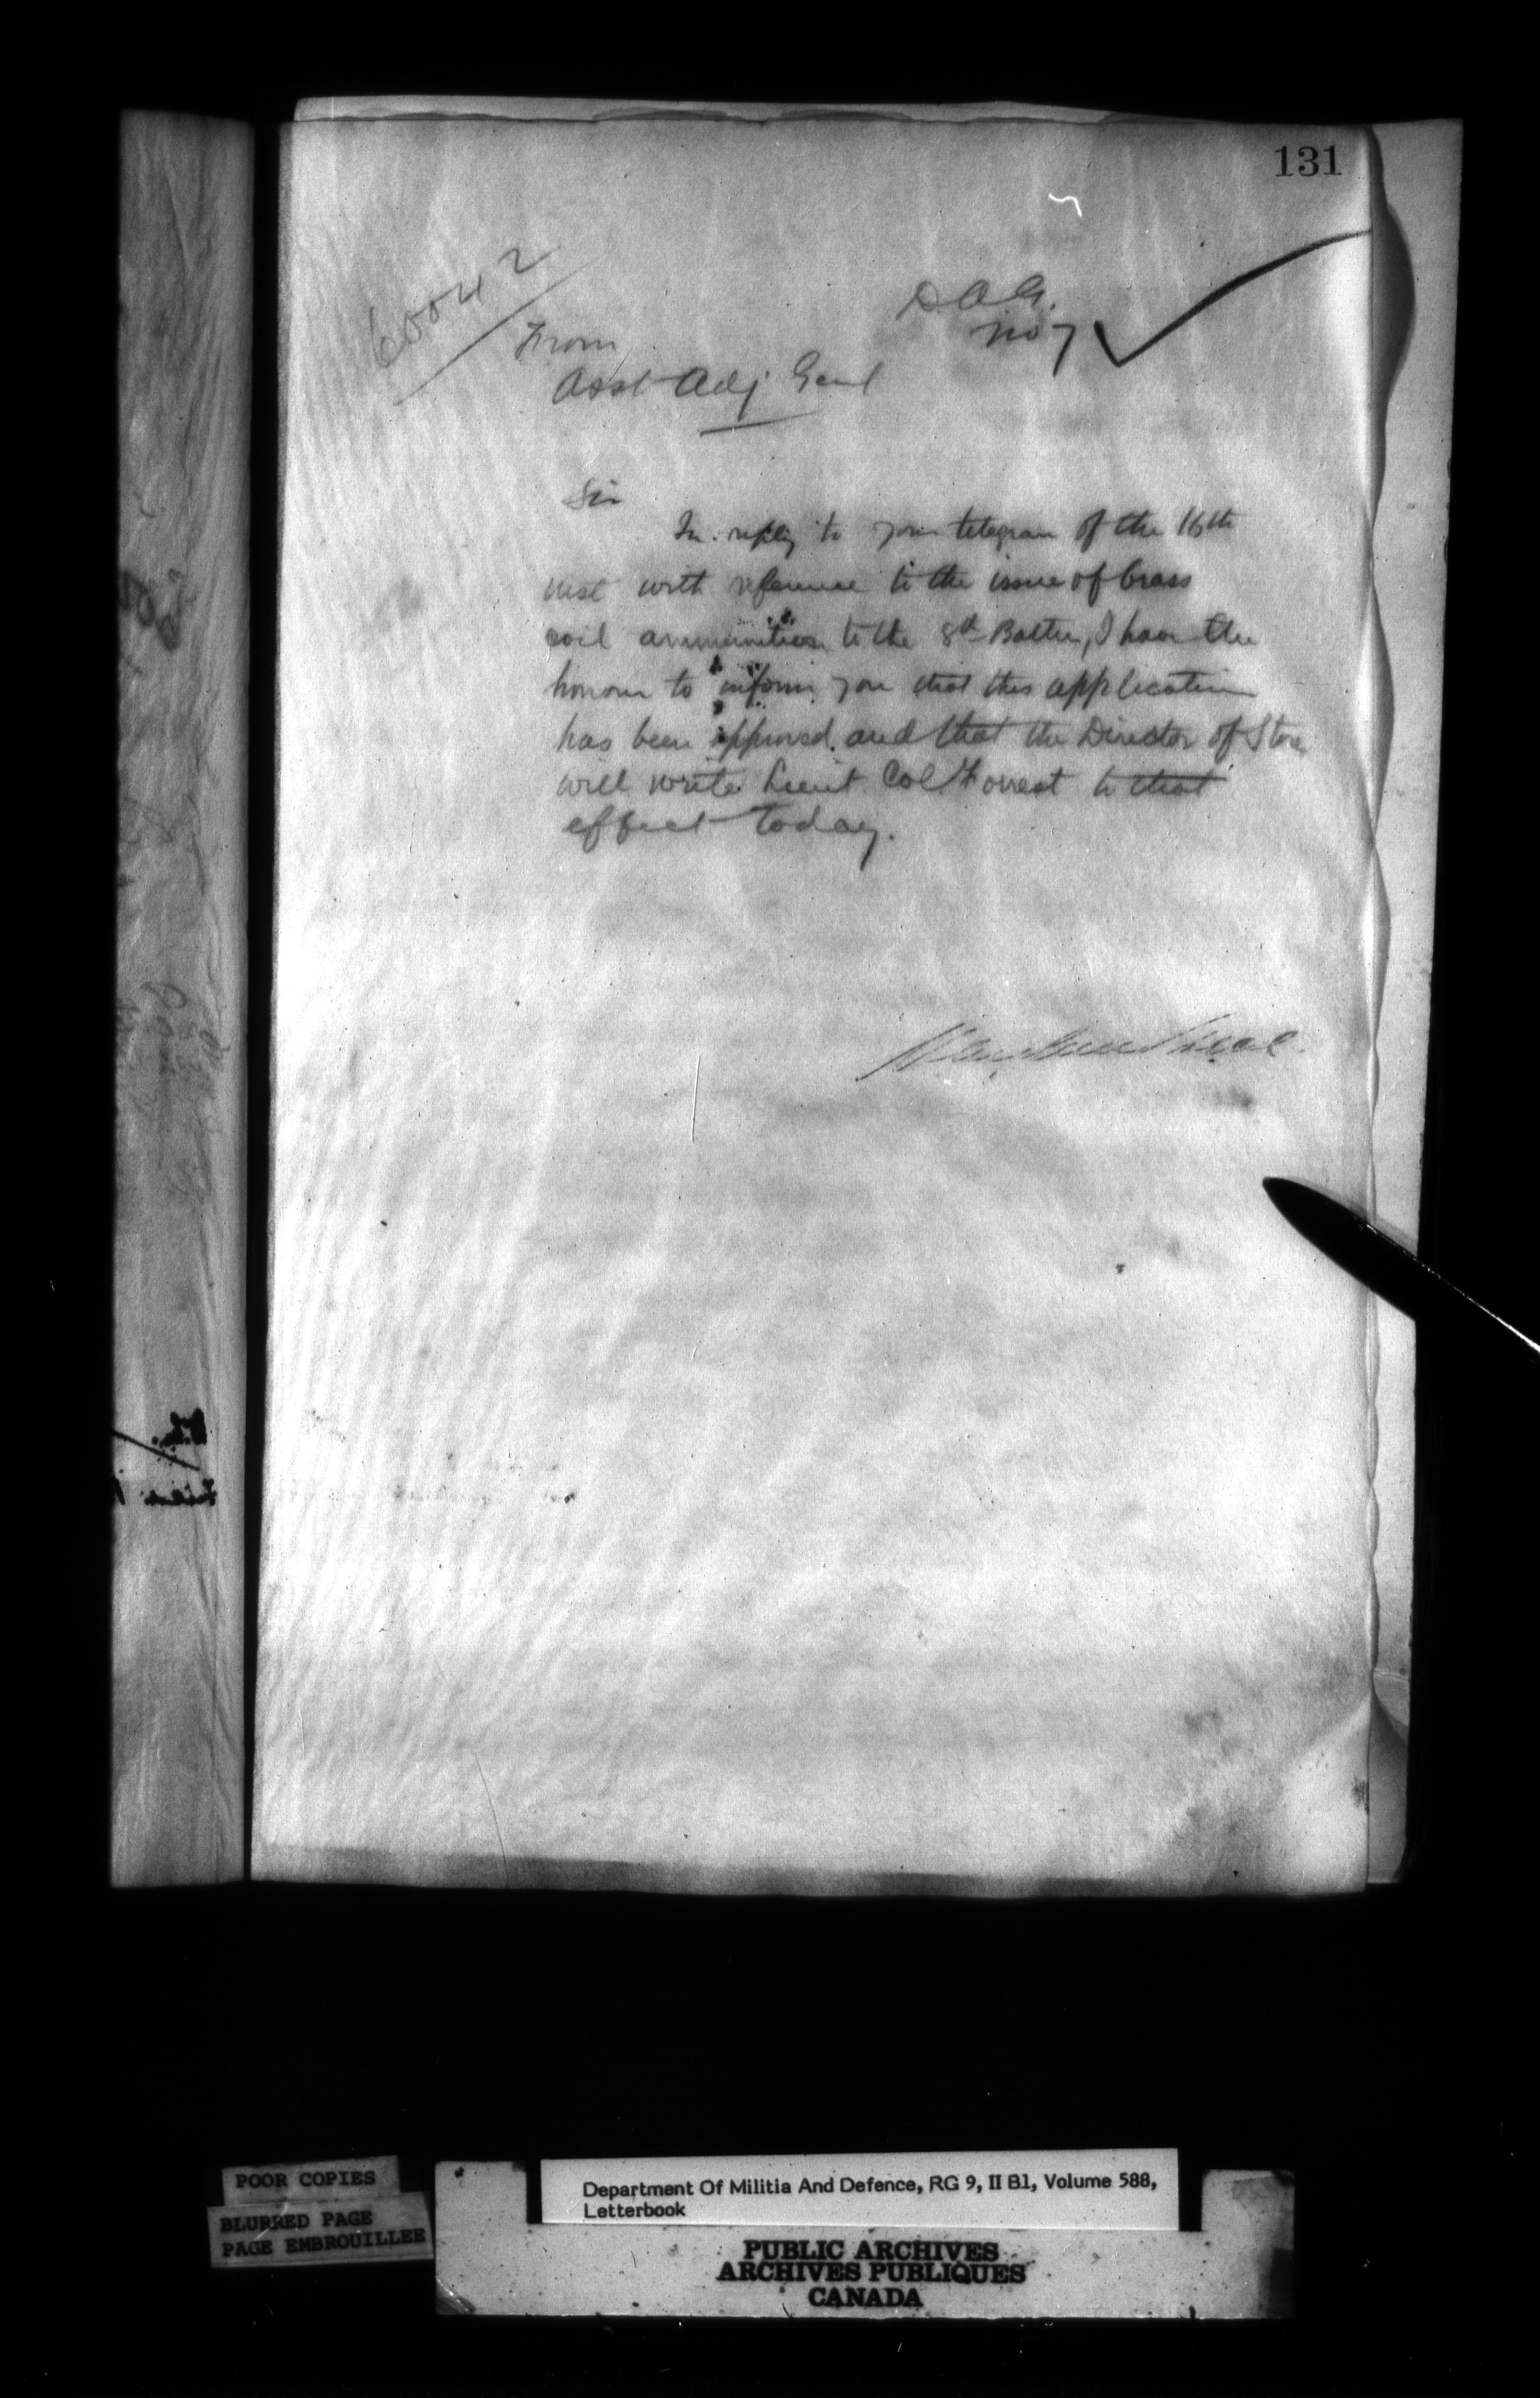 131
60042
D A G.
No 7
From
Asst Adj Genl
Sir
In reply to your telegram of the 16th
inst with reference to the issue of brass
coil ammunition to the 8th Battn, I have the
honour to inform you that this application
has been approved and that the Director of Stores
will write Lieut Col Forrest to that
effect today.
POOR COPIES
BLURRED PAGE
PAGE EMBROUILLEE
Department Of Militia And Defence, RG 9, II B1, Volume 588,
Letterbook
PUBLIC ARCHIVES
ARCHIVES PUBLIQUES
CANADA